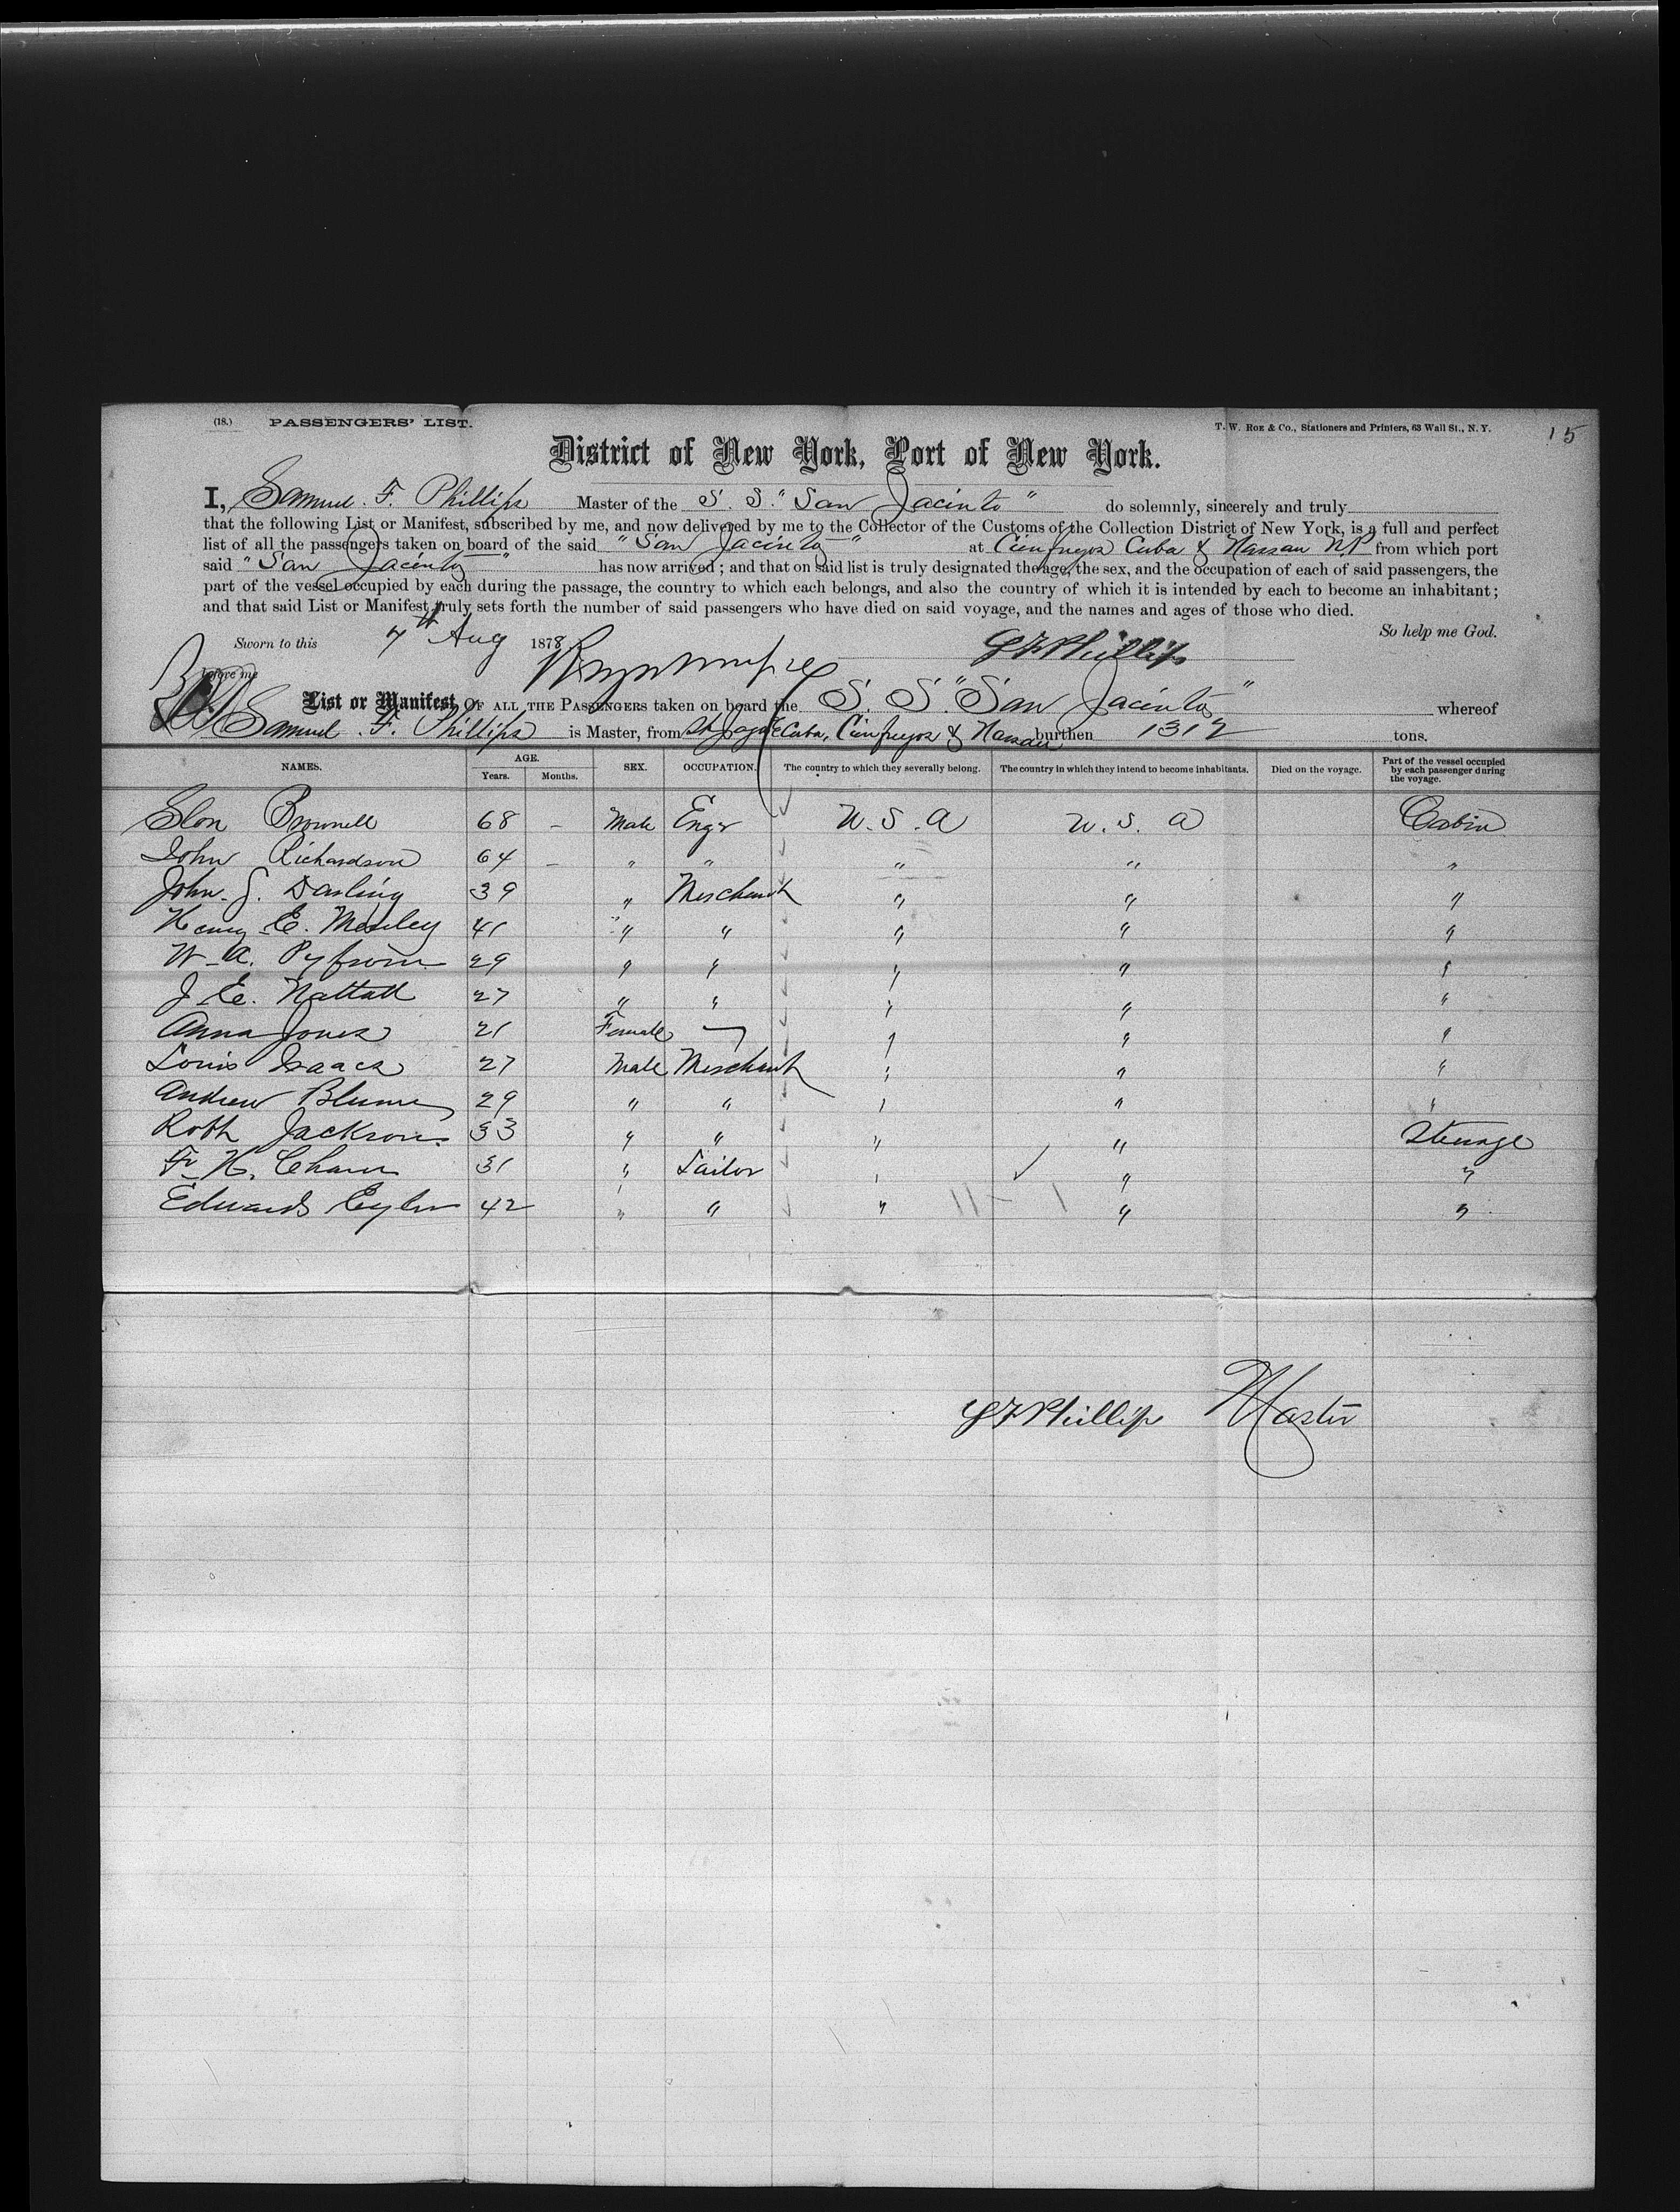 (18.) PASSENGERS' LIST. T. W. ROE & CO., Stationers and Printers, 63 Wall St., N. Y. 15
District of New York, Port of New York.
I, Samuel. F. Phillips Master of the S. S. "San Jacinto" do solemnly, sincerely and truly
that the following List or Manifest, subscribed by me, and now delivered by me to the Collector of the Customs of the Collection District of New York, is a full and perfect
list of all the passengers taken on board of the said "San Jacinto" at Cienfuegos Cuba & Nassau N.P from which port
said "San Jacinto" has now arrived; and that on said list is truly designated the age, the sex, and the occupation of each of said passengers, the
part of the vessel occupied by each during the passage, the country to which each belongs, and also the country of which it is intended by each to become an inhabitant;
and that said List or Manifest truly sets forth the number of said passengers who have died on said voyage, and the names and ages of those who died.
Sworn to this 7th Aug 1878 So help me God.
before me S F Phillips
List or Manifest OF ALL THE PASSENGERS taken on board the S. S. "San Jacinto" whereof
Samuel. F. Phillips is Master, from St Jago de Cuba, Cienfuegos & Nassau burthen 1312 tons.
NAMES. AGE. Years. Months. SEX. OCCUPATION. The country to which they severally belong. The country in which they intend to become inhabitants. Died on the voyage. Part of the vessel occupied by each passenger during the voyage.
Brownell 68 – Male Engr U.S.A U.S.A Cabin
John Richardson 64 – " " " " "
John. S. Darling 39 " Merchant " " "
Henry E. Moseley 41 " " " " "
W. A. Pyfrom 29 " " " " "
J. E. Nattall 27 " " " " "
Anna Jones 21 Female — " " "
Louis Isaacs 27 Male Merchant " " "
Andrew Blume 29 " " " " "
Robt Jackson. 33 " " " " Steerage
F. H. 31 " Sailor " " "
Edward 42 " " " 11 – 1 " "
S F Phillips Master